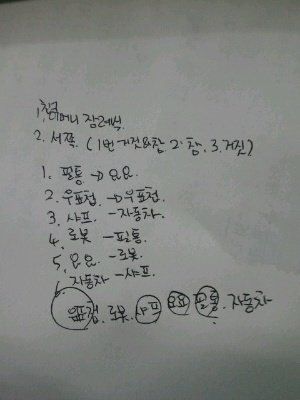 1. 형 어머니 장례식.
2. 서쪽. (1번 거짓&참 2. 참. 3. 거짓)
1. 필통 → 요요.
2. 우표첩. → 우표첩.
3. 샤프. - 자동차.
4. 로봇 - 필통.
5. 요요. - 로봇.
6. 자동차 - 샤프.
우표첩. 로봇. 샤프 요요 필통. 자동차